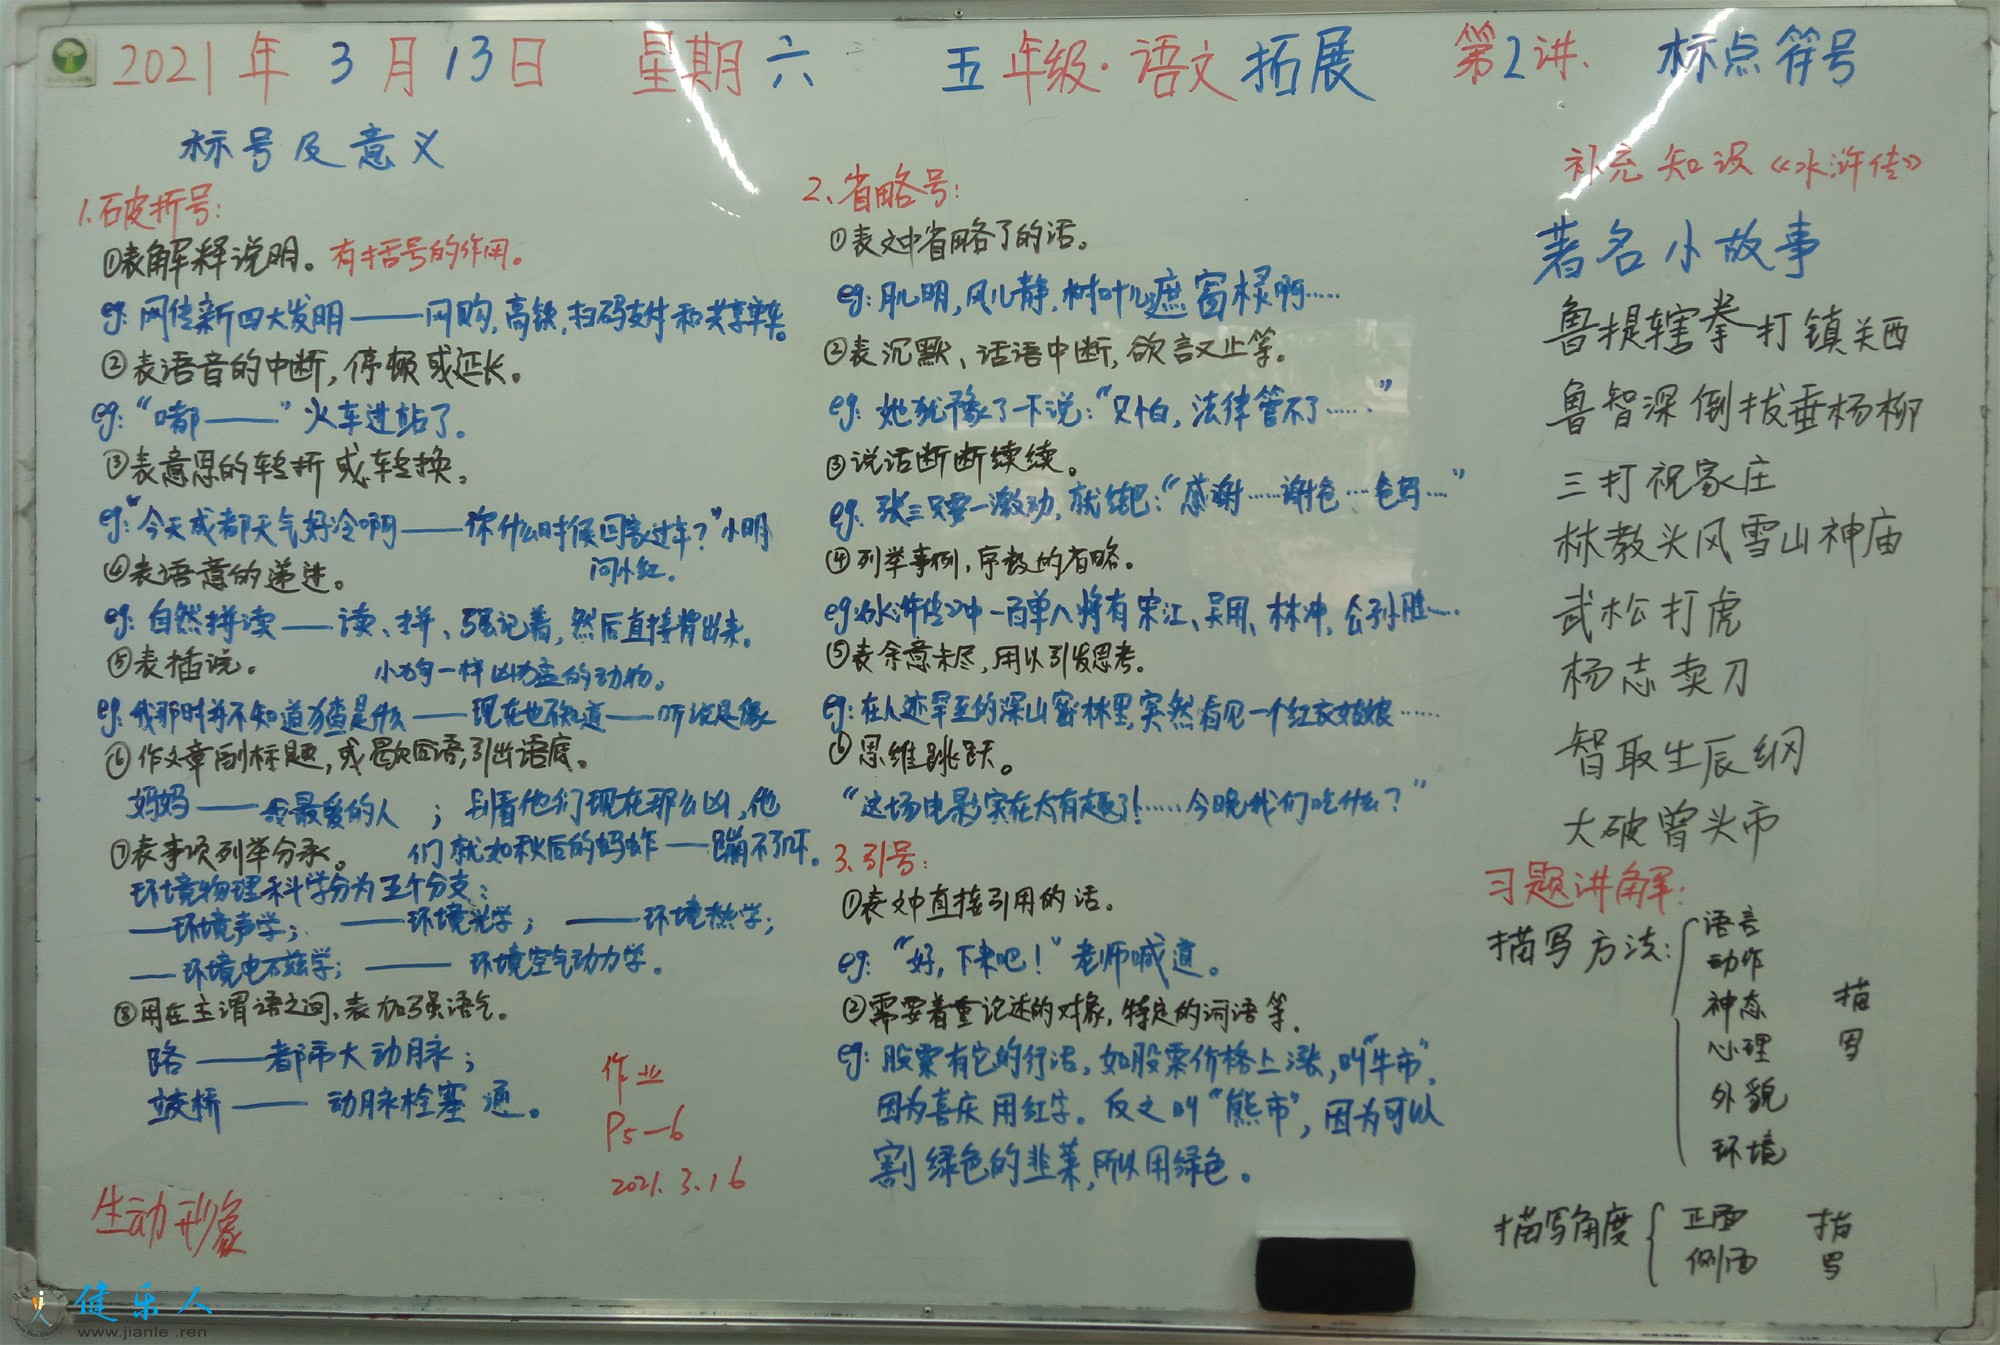 2021年3月13日 星期六 五年级·语文拓展 第2讲、标点符号
标号及意义
1.破折号:
①表解释说明。有括号的作用。
eg: 网传新四大发明——网购,高铁,扫码支付和共享单车。
②表语音的中断,停顿或延长。
eg:“嘟——”火车进站了。
③表意思的转折或转换。
eg:“今天成都天气好冷啊——你什么时候回家过年?”小明
问小红.
④表语意的递进。
eg: 自然拼读——读、拼、强记着,然后直接背出来。
⑤表插说。
小狗一样凶猛的动物。
eg:我那时并不知道猹是什么——现在也不知道——听说是像
⑥作文章副标题,或歇后语,引出语底。
妈妈——我最爱的人 ; 别看他们现在那么凶,他
们就如秋后的蚂蚱——蹦不了吓。
⑦表事项列举分承。
环境物理科学分为五个分支:
——环境声学; ——环境光学; ——环境热学;
——环境电磁学; ——环境空气动力学。
⑧用在主谓语之间,表加强语气。
路——都市大动脉;
立交桥——动脉栓塞通。
作业
P5—6
2021.3.16
生动形象
2、省略号:
①表文中省略了的话。
eg:月儿明,风儿静,树叶儿遮窗棂啊……
②表沉默、话语中断,欲言又止等。
eg: 她犹豫了一下说:“只怕,法律管不了……”
③说话断断续续。
eg: 张三只要一激动,就结巴:“感谢……谢爸…爸妈…”
④列举事例,序数的省略。
eg:《水浒传》中一百单八将有宋江、吴用、林冲,公孙胜…
⑤表余意未尽,用以引发思考。
eg:在人迹罕至的深山密林里,突然看见一个红衣姑娘……
⑥思维跳跃。
“这场电影实在太有趣了!……今晚我们吃什么?”
3.引号:
①表文中直接引用的话。
eg: “好,下来吧!”老师喊道。
②需要着重论述的对象,特定的词语等.
eg: 股票有它的行话,如股票价格上涨,叫“牛市”,
因为喜庆用红字。反之叫“熊市”,因为可以
割绿色的韭菜,所以用绿色。
补充知识《水浒传》
著名小故事
鲁提辖拳打镇关西
鲁智深倒拔垂杨柳
三打祝家庄
林教头风雪山神庙
武松打虎
杨志卖刀
智取生辰纲
大破曾头市
习题讲解:
描写方法:
语言
动作
神态
心理
外貌
环境
描写
描写角度
正面
侧面
描写
健乐人
www.jianle.ren